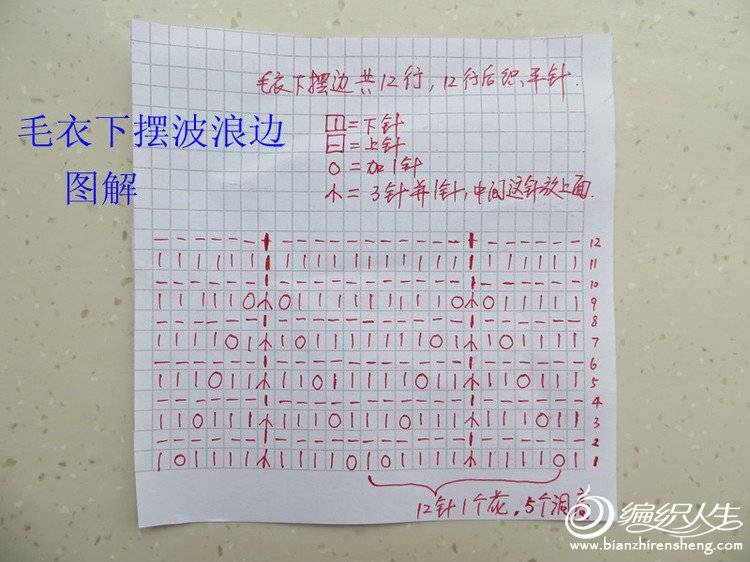 毛衣下摆边共12行,12行后织平针.
毛衣下摆波浪边
图解
囗=下针
曰=上针
O=加1针
木=3针并1针,中间这针放上面.
— — — — — — | — — — — — — — — — — — | — — — — — — 12
| | | | | | | | | | | | | | | | | | | | | | | | | 11
— — — — — — | — — — — — — — — — — — | — — — — — — 10
| | | | | O 木 O | | | | | | | | | O 木 O | | | | | 9
— — — — — — | — — — — — — — — — — — | — — — — — — 8
| | | | O | 木 | O | | | | | | | O | 木 | O | | | | 7
— — — — — — | — — — — — — — — — — — | — — — — — — 6
| | | O | | 木 | | O | | | | | O | | 木 | | O | | | 5
— — — — — — | — — — — — — — — — — — | — — — — — — 4
| | O | | | 木 | | | O | | | O | | | 木 | | | O | | 3
— — — — — — | — — — — — — — — — — — | — — — — — — 2
| O | | | | 木 | | | | O | O | | | | 木 | | | | O | 1
12针1个花,5个洞
编织人生
www.bianzhirensheng.com